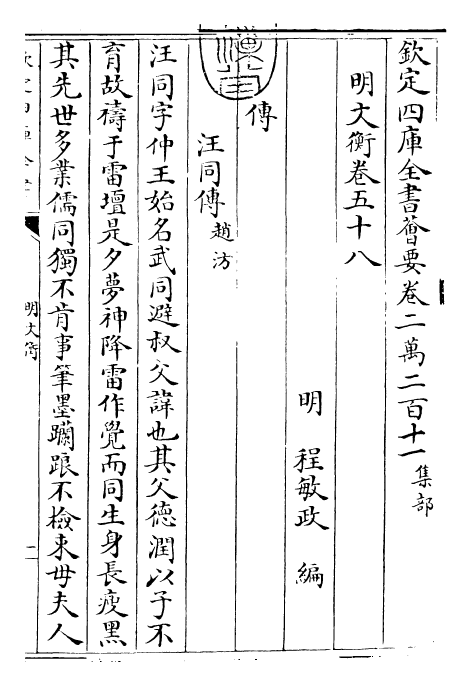 欽定四庫全書薈要卷二萬二百十一集部
明文衡卷五十八
明 程敏政 編
傳
汪同傳 趙汸
汪同字仲玉始名武同避叔父諱也其父德潤以子不
育故禱于雷壇是夕夢神降雷作覺而同生身長瘦黑
其先世多業儒同獨不肯事筆墨躝踉不檢束毋夫人
明文衡